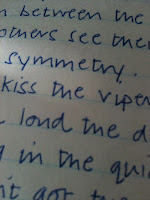 between the
others see the
symmetry.
kiss the viper
loud the d
in the qui
got th